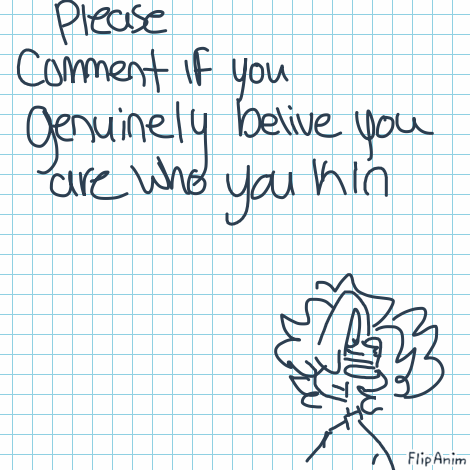 Please
Comment if you
genuinely belive you
are who you kin
FlipAnim